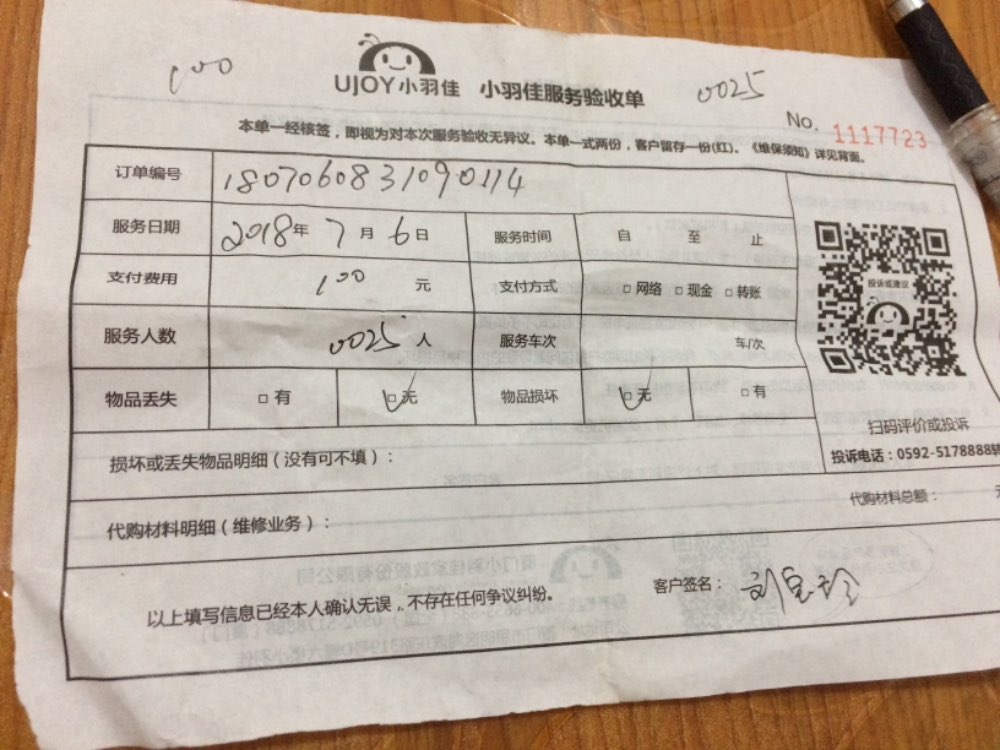 100
UJOY小羽佳 小羽佳服务验收单
0025
No. 1117723
本单一经核签，即视为对本次服务验收无异议。本单一式两份，客户留存一份(红)。《维保须知》详见背面。
订单编号 1807060831090114
服务日期 2018年 7月 6日 服务时间 自 至 止
支付费用 100 元 支付方式 □网络 □现金 □转账
投诉或建议
服务人数 0025 人 服务车次 车/次
物品丢失 □有 □无 物品损坏 □无 □有
扫码评价或投诉
损坏或丢失物品明细（没有可不填）：
投诉电话：0592-5178888转
代购材料明细（维修业务）：
代购材料总额：
以上填写信息已经本人确认无误，不存在任何争议纠纷。
客户签名：